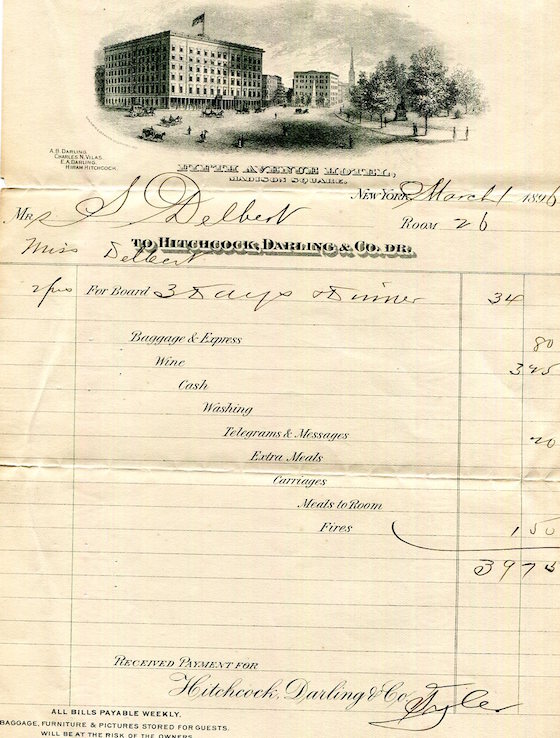 A. B. DARLING.
CHARLES N. VILAS.
E. A. DARLING.
HIRAM HITCHCOCK.
FIFTH AVENUE HOTEL,
MADISON SQUARE.
NEW YORK March 1 1896
Mrs S Delbert ROOM 26
Miss Delbert
TO HITCHCOCK, DARLING & CO. DR.
2 prs For Board 3 Days & Dinner 34
Baggage & Express 80
Wine 3 45
Cash
Washing
Telegrams & Messages 20
Extra Meals
Carriages
Meals to Room
Fires 1 50
39 75
RECEIVED PAYMENT FOR
Hitchcock, Darling & Co.
ALL BILLS PAYABLE WEEKLY.
BAGGAGE, FURNITURE & PICTURES STORED FOR GUESTS,
WILL BE AT THE RISK OF THE OWNERS